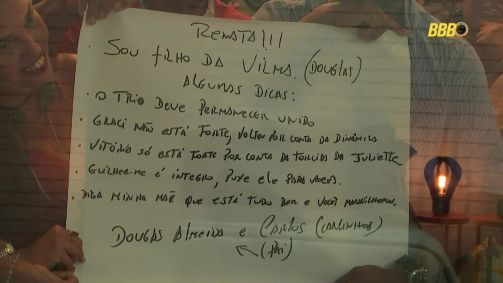 BBB
RENATA!!!
• SOU FILHO DA VILMA. (DOUGLAS)
ALGUMAS DICAS:
• O TRIO DEVE PERMANECER UNIDO
• GRACI NÃO ESTÁ FORTE, VOLTOU POR CONTA DA DINÂMICA
• VITÓRIO SÓ ESTÁ FORTE POR CONTA DA TORCIDA DA JULIETTE
• GUILHERME É ÍNTEGRO, PUXE ELE PARA VOCÊS.
• DIGA MINHA MÃE QUE ESTÁ TUDO BEM E VOCÊS MARAVILHOSAS.
DOUGLAS ALMEIDA E CARLOS (CARLINHOS)
(PAI)